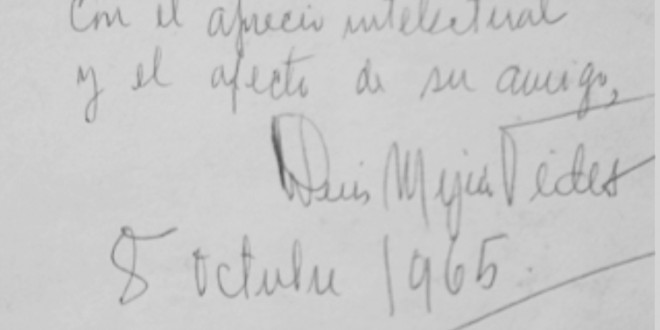 Con el aprecio intelectual
y el afecto de su amigo,
Luis Mejia Vides
8 octubre 1965.